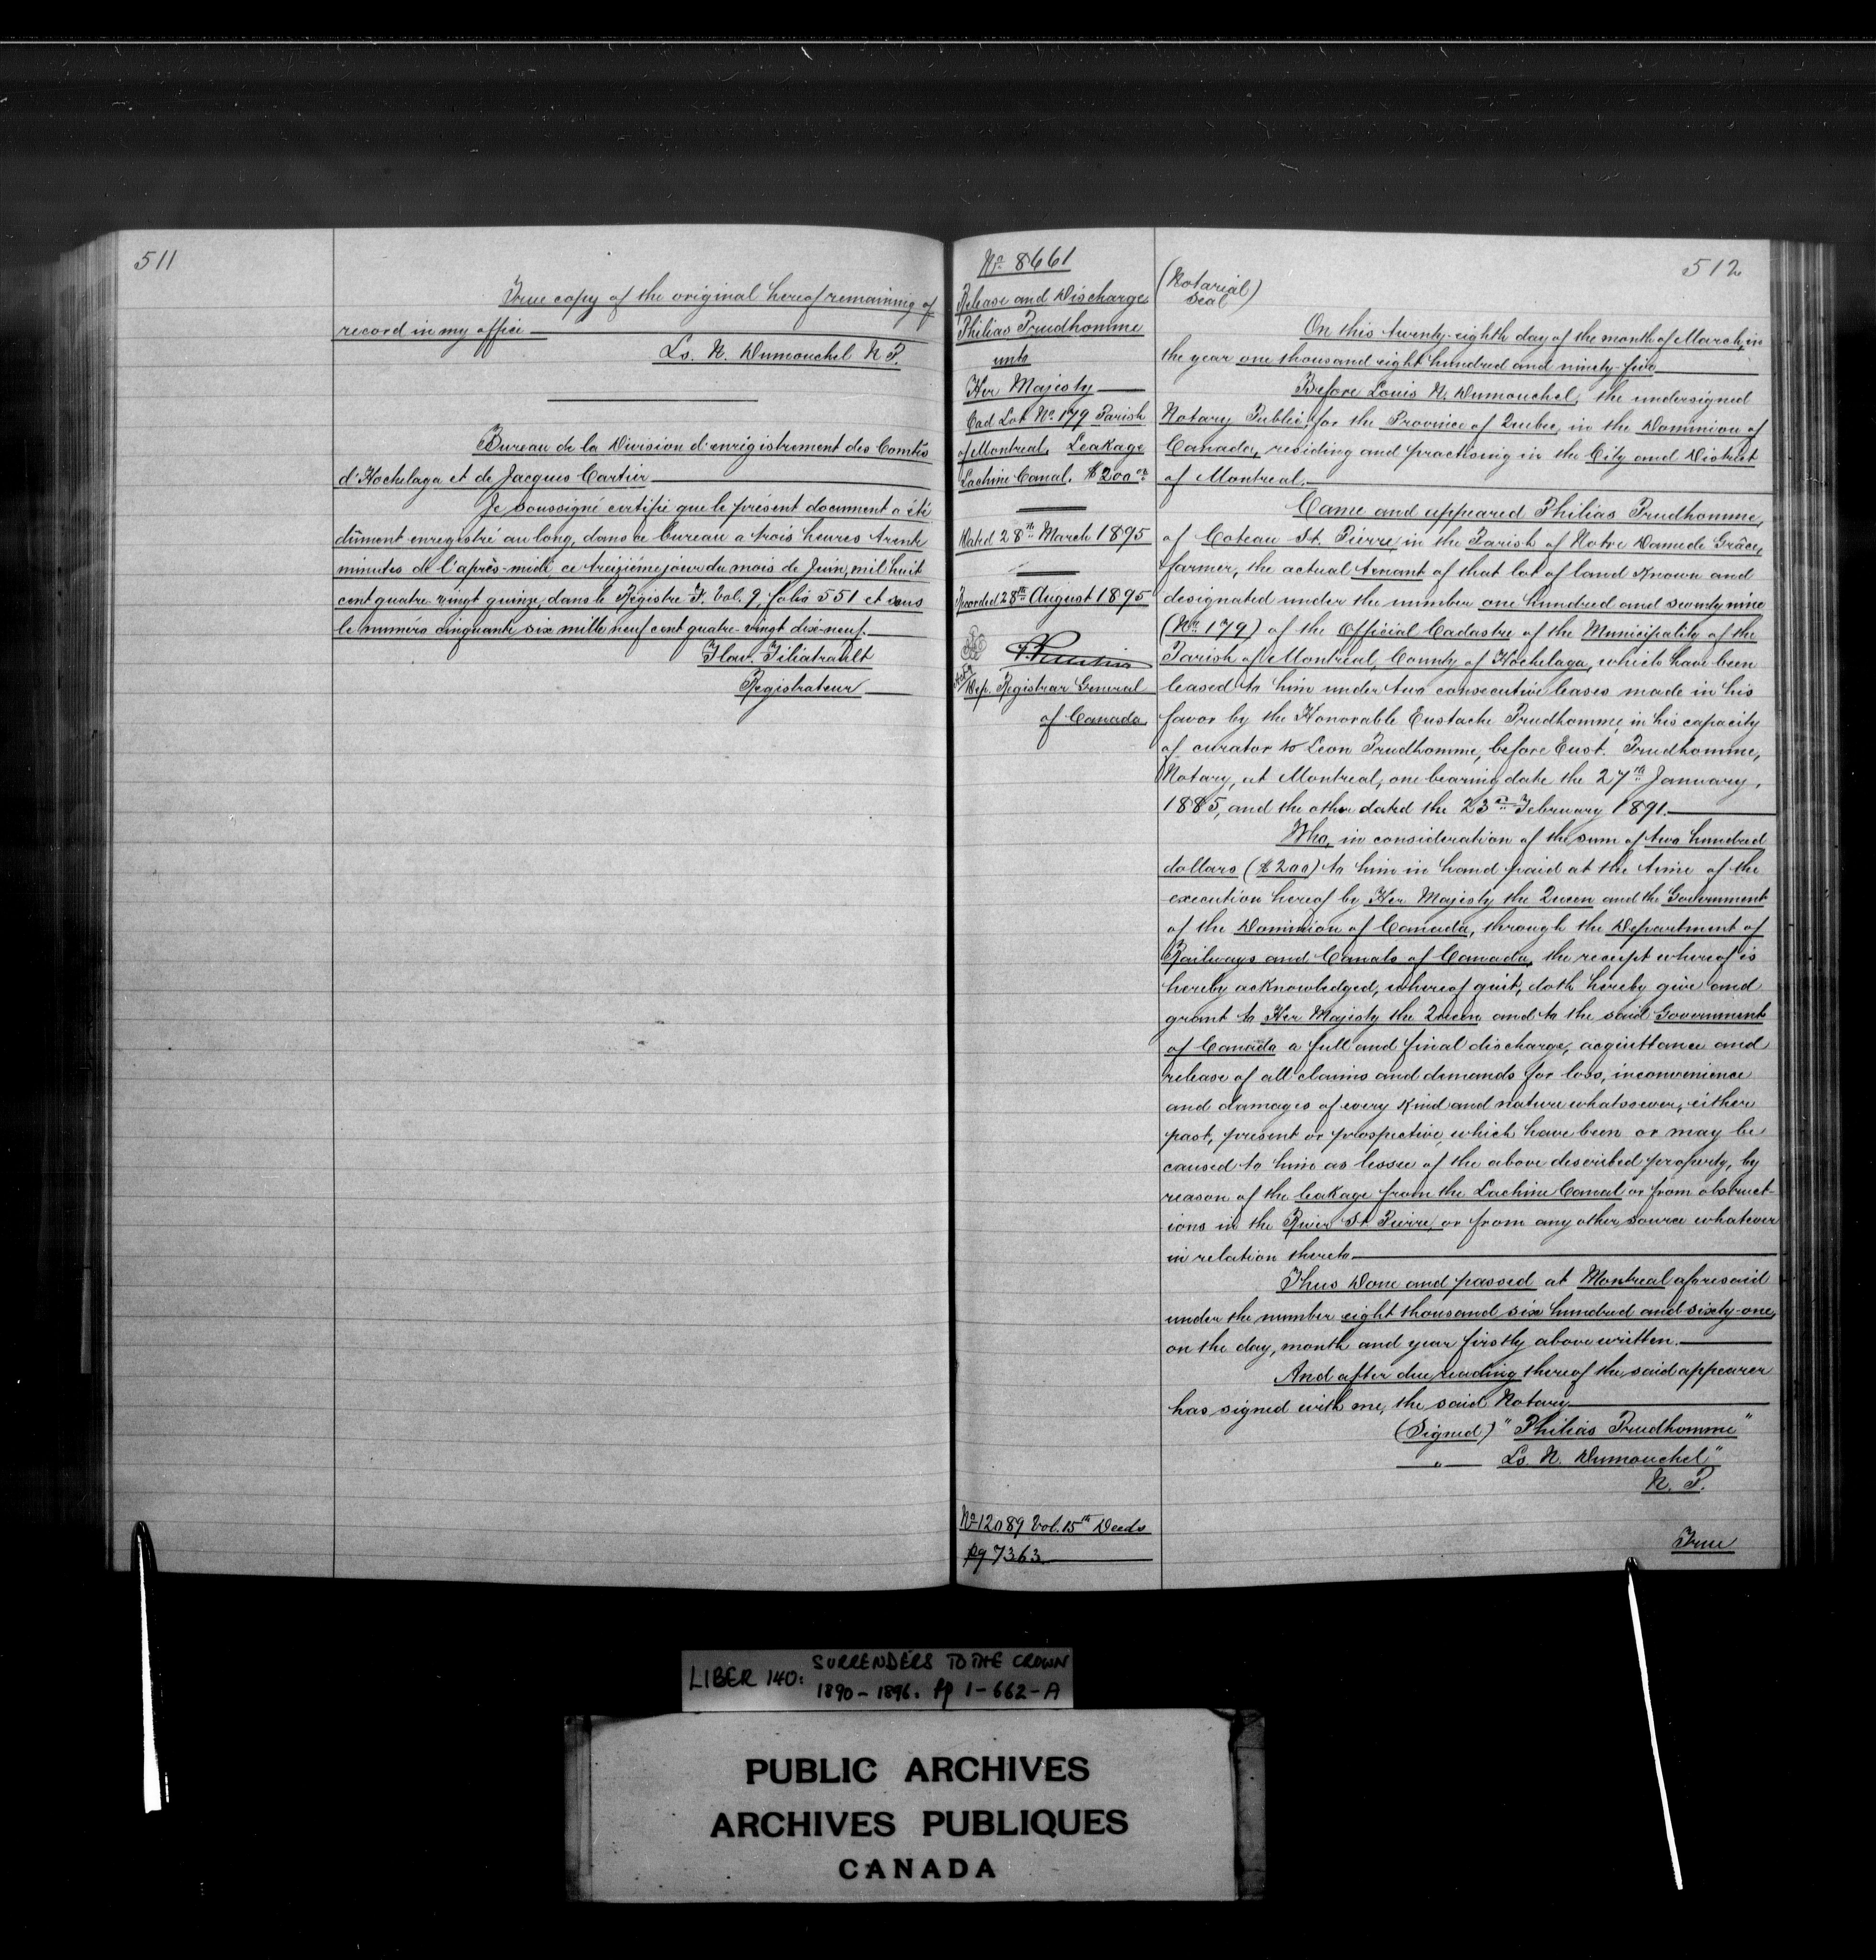 511
True copy of the original hereof remaining of
record in my office
Ls. N. Dumouchel N. P.
Bureau de la Division d'enrigistrement des Comtés
d'Hochelaga et de Jacques Cartier
Je soussigné certifie que le présent document a été
dûment enregistré au long, dans ce bureau a trois heures trente
minutes de l'après-midi ce treizième jour du mois de Juin, mil huit
cent quatre-vingt quinze, dans le Régistre F. Vol. 9 folio 551 et sous
le numéro cinquante six mille neuf cent quatre-vingt dix-neuf.
Flav. Filiatrault
Registrateur
No 8661
Release and Discharge
Philias Prudhomme
unto
Her Majesty
Cad Lot No 179 Parish
of Montreal, Leakage
Lachine Canal. $200.00
Dated 28th March 1895
Recorded 28th August 1895
Dep. Registrar General
of Canada
No 12089 Vol. 15th Deeds
pg 7363
512
(Notarial
Seal)
On this twenty-eighth day of the month of March, in
the year one thousand eight hundred and ninety-five
Before Louis N. Dumouchel, the undersigned
Notary Public, for the Province of Quebec, in the Dominion of
Canada, residing and practising in the City and District
of Montreal.
Came and appeared Philias Prudhomme,
of Coteau St. Pierre, in the Parish of Notre Dame de Grâce,
farmer, the actual tenant of that lot of land known and
designated under the number one hundred and seventy nine
(No 179) of the Official Cadastre of the Municipality of the
Parish of Montreal, County of Hochelaga, which have been
leased to him under two consecutive leases made in his
favor by the Honorable Eustache Prudhomme, in his capacity
of curator to Leon Prudhomme, before Eust. Prudhomme,
Notary, at Montreal, one bearing date the 27th January,
1885, and the other dated the 23rd February 1891.
Who, in consideration of the sum of two hundred
dollars ($200) to him in hand paid at the time of the
execution hereof by Her Majesty the Queen and the Government
of the Dominion of Canada, through the Department of
Railways and Canals of Canada, the receipt whereof is
hereby acknowledged, whereof quit, doth hereby give and
grant to Her Majesty the Queen and to the said Government
of Canada a full and final discharge, acquittance and
release of all claims and demands for loss, inconvenience
and damages of every kind and nature whatsoever, either
past, present or prospective, which have been or may be
caused to him as lessee of the above described property, by
reason of the leakage from the Lachine Canal or from obstruct-
ions in the River St Pierre, or from any other source whatever
in relation thereto
Thus Done and passed at Montreal aforesaid
under the number eight thousand six hundred and sixty-one,
on the day, month and year firstly above written.
And after due reading thereof the said appearer
has signed with me, the said Notary
(Signed) "Philias Prudhomme"
" Ls N. Dumouchel"
N. P.
True
LIBER 140: SURRENDERS TO THE CROWN
1890-1896. pp 1-662-A
PUBLIC ARCHIVES
ARCHIVES PUBLIQUES
CANADA